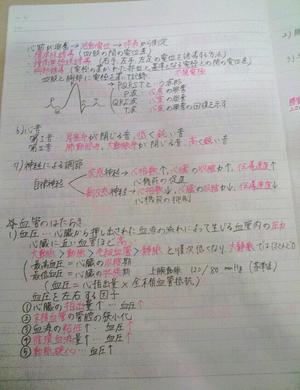 心筋が興奮→活動電位→体表から測定
標準肢誘導(四肢の間の電位差)
(右手、左手、左足の電位を誘導する方法)
四肢と胸部に電極をつけて記録
→PQRSTという波形
P波…心房の興奮
QRS波…心室の興奮
T波…心室の興奮の回復を示す
6)心音
第1音 房室弁が閉じる音、低く鈍い音
第2音 肺動脈弁、大動脈弁が閉じる音、高く鋭い音
7)神経による調節
自律神経
交感神経→心拍数↑、心臓の収縮力↑、伝導速度↑
心機能の促進
副交感神経→心拍数↓、心臓の収縮力↓、伝導速度↓
心機能の抑制
※血管のはたらき
1)血圧…心臓から押し出された血液の流れによって生じる血管内の圧力
心臓に近い血管ほど高
大動脈>動脈>毛細血管>静脈と順次低くなり、大静脈ではほとんど0
最高血圧=心臓の収縮期
最低血圧=心臓の拡張期
上腕動脈 120/80 mmHg
(血圧=心拍出量×全末梢血管抵抗)
血圧を左右する因子
①心臓の拍出量↑…血圧↑
②末梢血管の管腔の狭小化
③血液の粘性↑…血圧↑
④循環血液量↑…血圧↑
⑤動脈硬化…血圧↑